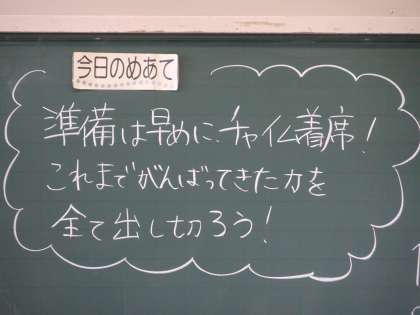 今日のめあて
準備は早めに、チャイム着席!
これまでがんばってきた力を
全て出し切ろう!